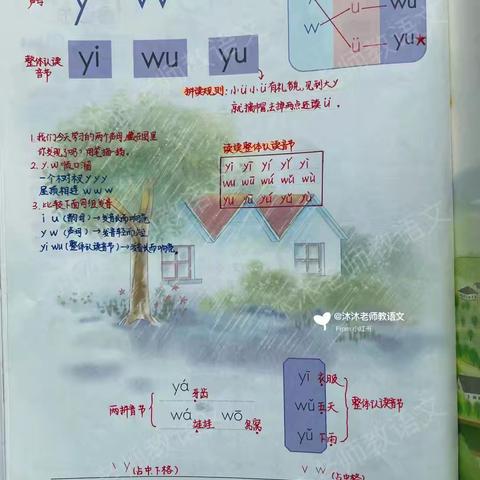 声母
y w
w ü wu
ü yu
整体认读音节
yi wu yu
拼读规则:小ü小ü有礼貌,见到大y
就摘帽,去掉两点还读ü。
1.我们今天学习的两个声母,藏在图里
你发现了吗?用笔描一描。
2. y.w 顺口溜
一个树杈 y y y
屋顶相连 w w w
3. 比较下面每组发音
i u (韵母)→发音长而响亮
y w (声母)→发音轻而短
yi wu (整体认读音节)→发音长而响亮。
读读整体认读音节
yi yī yí yǐ yì
wu wū wú wǔ wù
yu yū yú yǔ yù
@沐沐老师教语文
From 小红书
两拼音节
yá 牙齿
wá 娃娃 wō 鸟窝
yī 衣服
wǔ 五天
yǔ 下雨
整体认读音节
y (占中下格)
w (占中格)